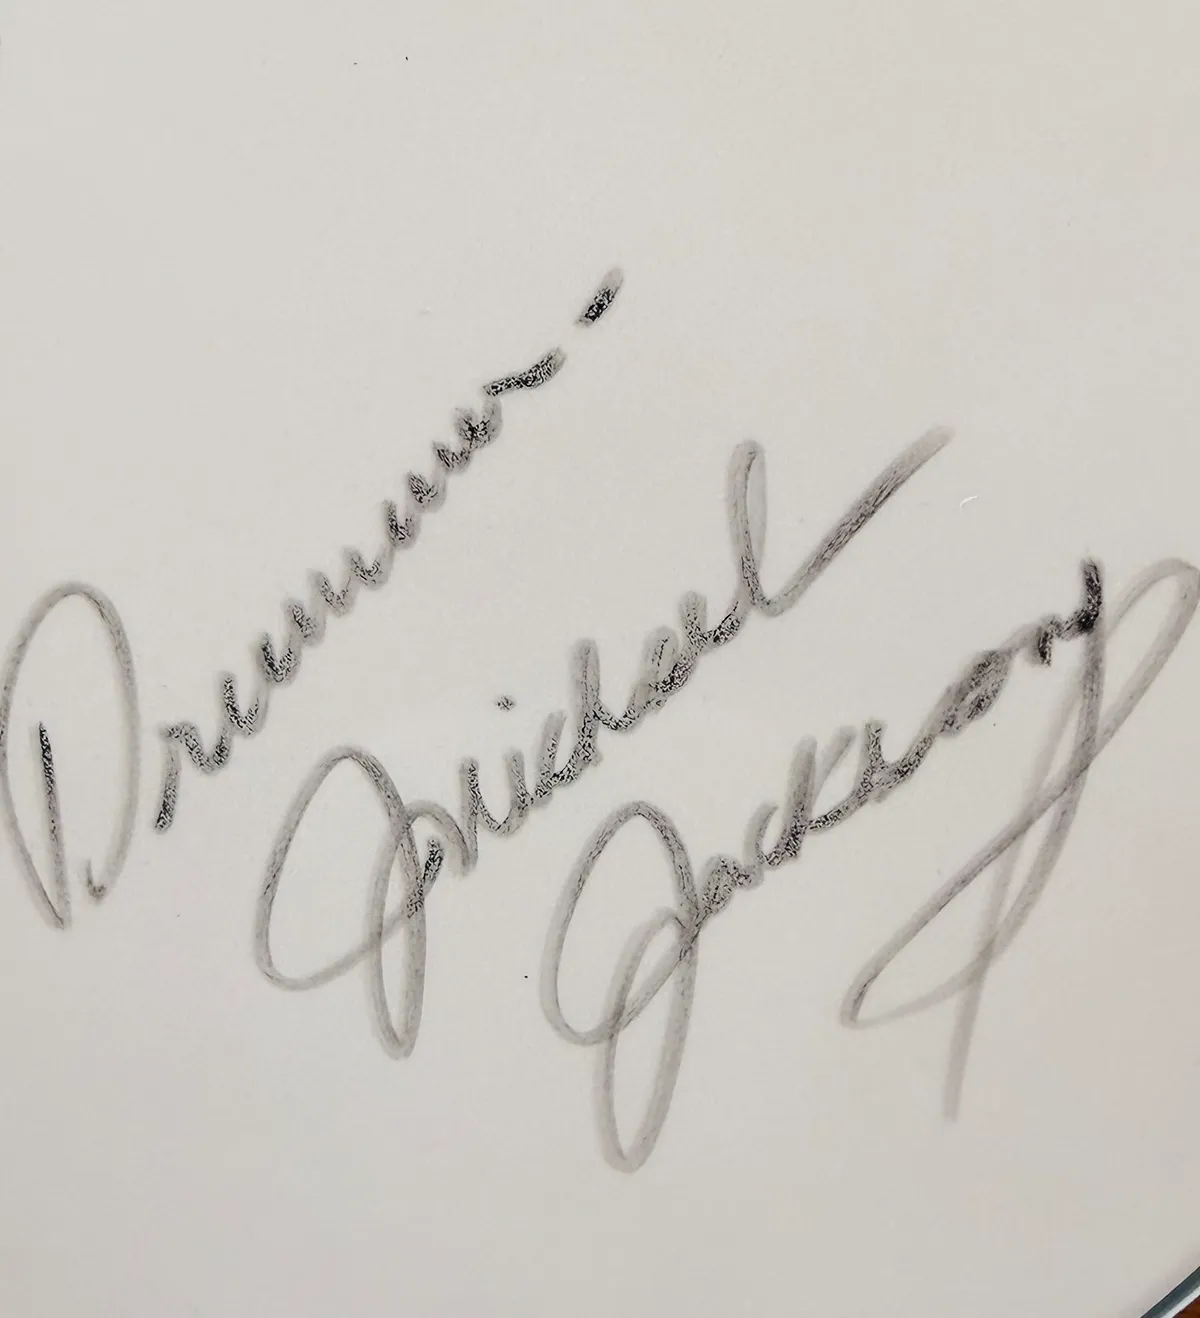 Drummer -
Michael
Jackson